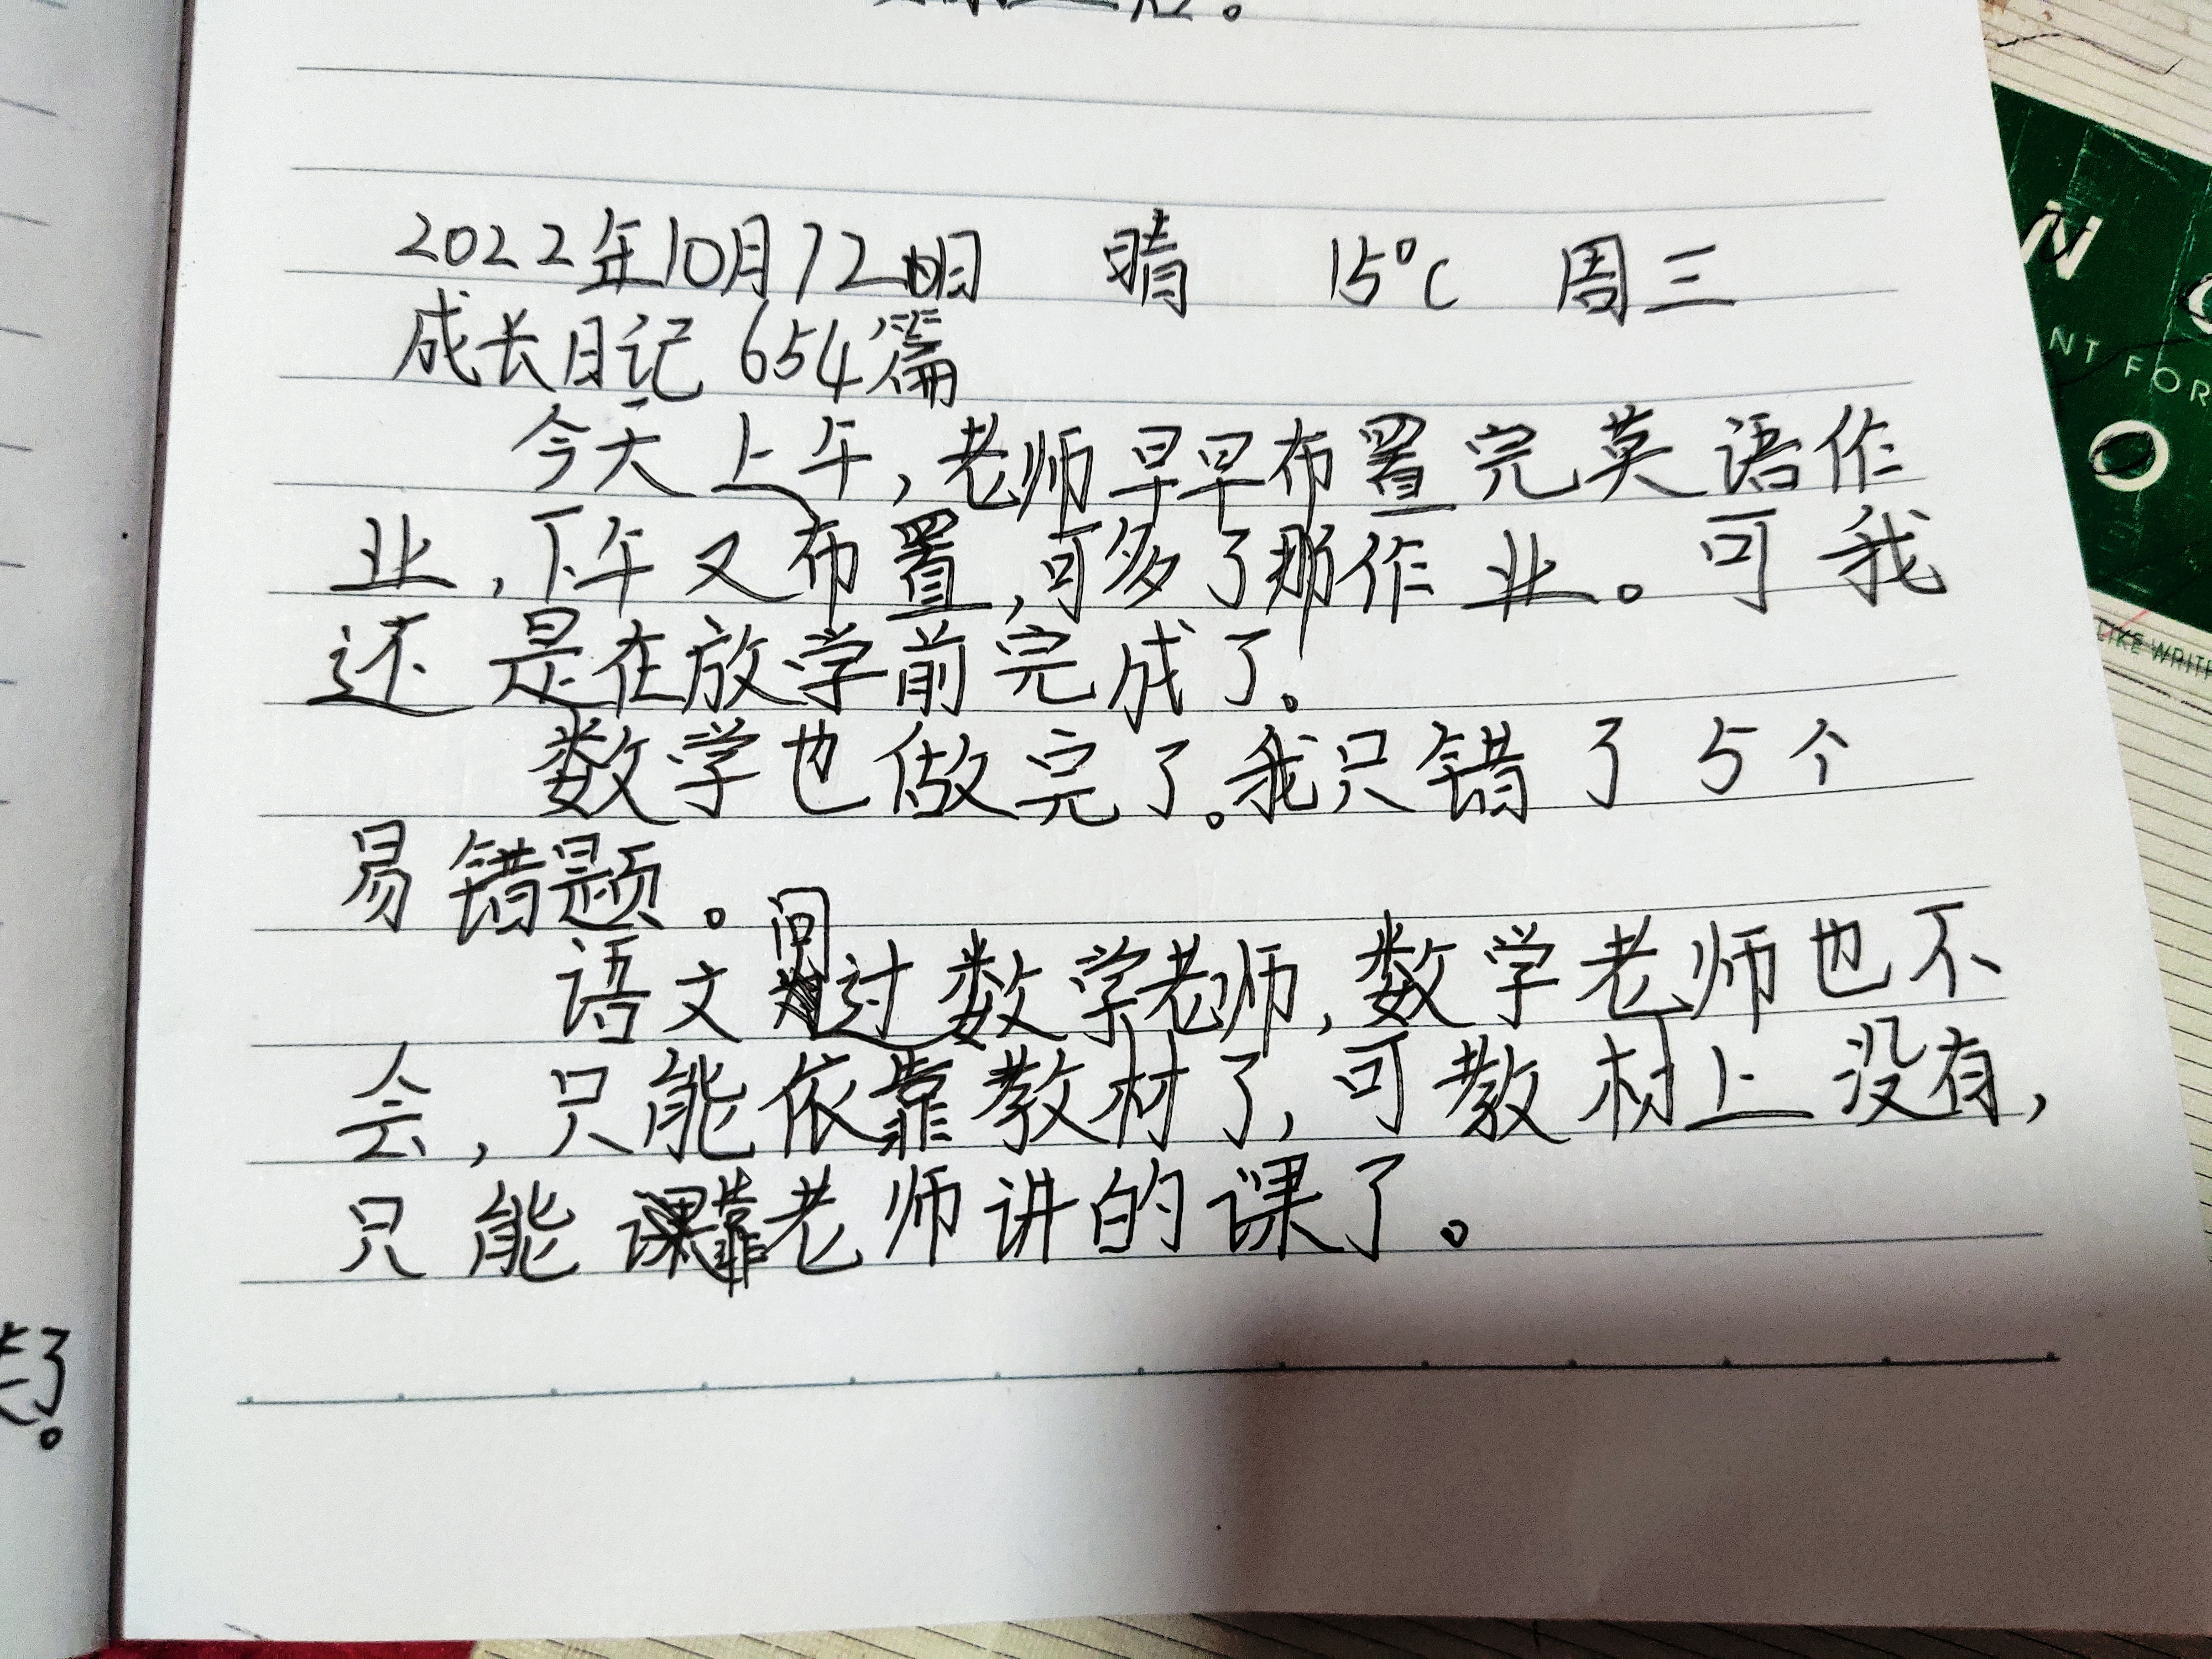 2022年10月12日 晴 15°C 周三
成长日记 654篇
今天上午,老师早早布置完英语作
业,下午又布置,可多了那作业。可我
还是在放学前完成了。
数学也做完了。我只错了5个
易错题。
语文问过数学老师,数学老师也不
会,只能依靠教材了,可教材上没有,
只能靠老师讲的课了。
了。
N
NT FOR
O
LIKE WRIT